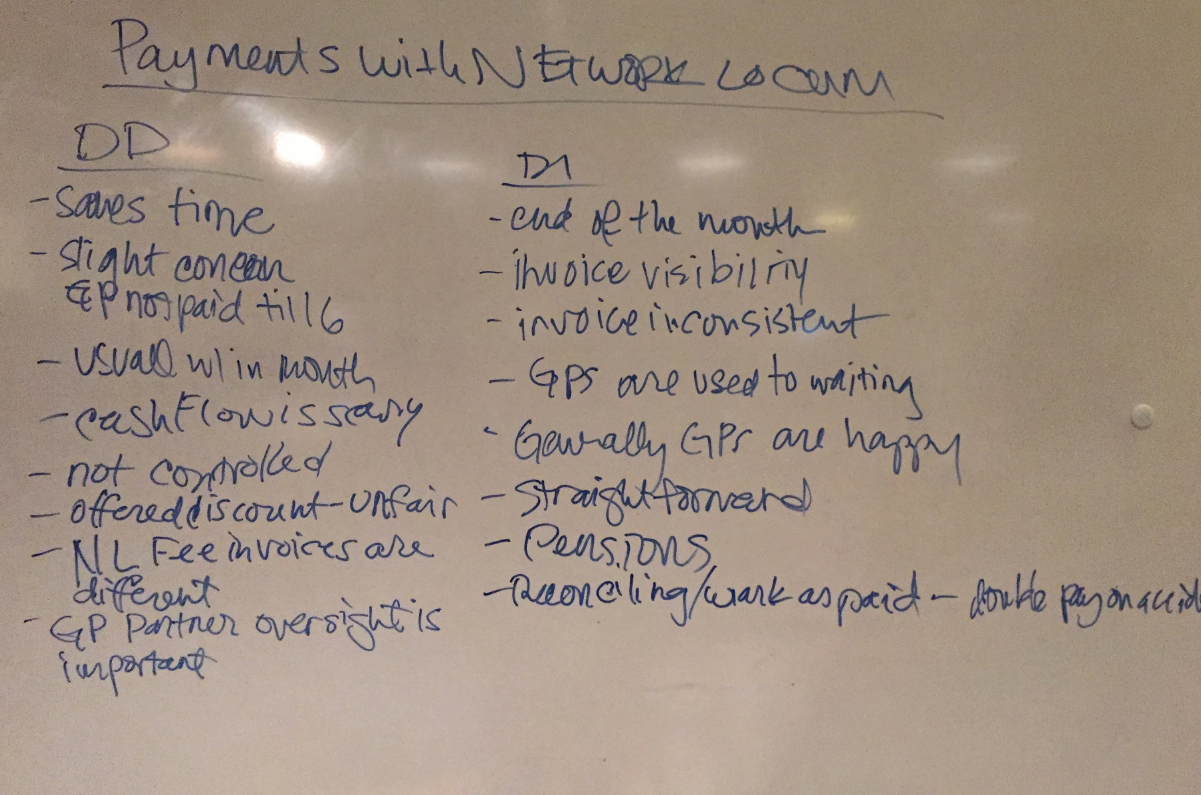 Payments with NEtwork Locum
DD
- Saves time
- slight concern
GP not paid till 16
- usuall w/in month
- cashflow is scary
- not controlled
- offered discount - unfair
- NL Fee invoices are
different
- GP Partner oversight is
important
- end of the month
- invoice visibility
- invoice inconsistent
- GPs are used to waiting
- Generally GPs are happy
- Straightforward
- Pensions
- Reconciling/mark as paid - double pay on accid